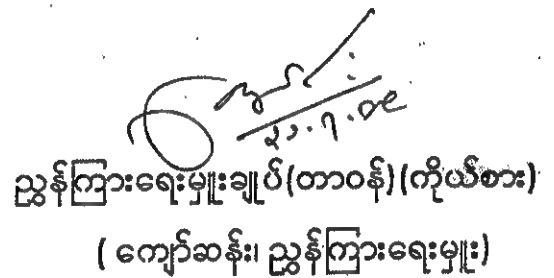 ညွှန်ကြားရေးမှူးချုပ်(တာဝန်)(ကိုယ်စား)
( ကျော်ဆန်း၊ ညွှန်ကြားရေးမှူး)